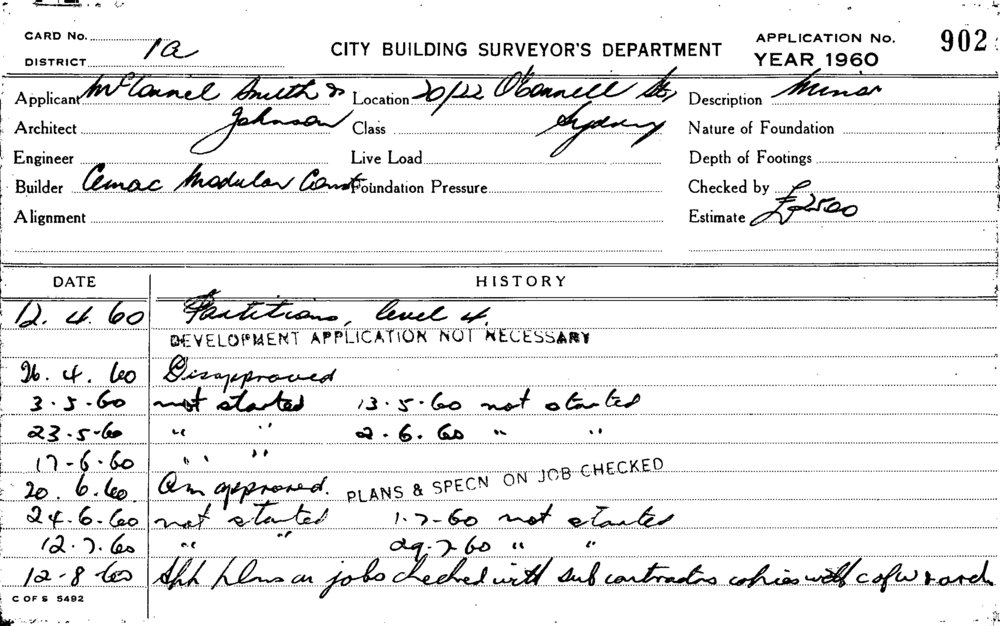 CARD No.
DISTRICT 1a
CITY BUILDING SURVEYOR'S DEPARTMENT
APPLICATION No. 902
YEAR 1960
Applicant McConnel Smith & Johnson
Location 20/22 O'Connell St, Sydney
Description Minor
Architect
Class
Nature of Foundation
Engineer
Live Load
Depth of Footings
Builder Cemac Modular Const
Foundation Pressure
Checked by
Alignment
Estimate £2500
DATE HISTORY
12. 4. 60 Partitions, level 4.
DEVELOPMENT APPLICATION NOT NECESSARY
26. 4. 60 Disapproved
3-5-60 not started 13-5-60 not started
23-5-60 " " 2.6.60 " "
17-6-60 " "
20. 6. 60. approved. PLANS & SPECN ON JOB CHECKED
24-6-60 not started 1-7-60 not started
12.7.60 " " 29.7.60 " "
12-8-60 plans on jobs checked with sub contractors copies with
C OF S 5492